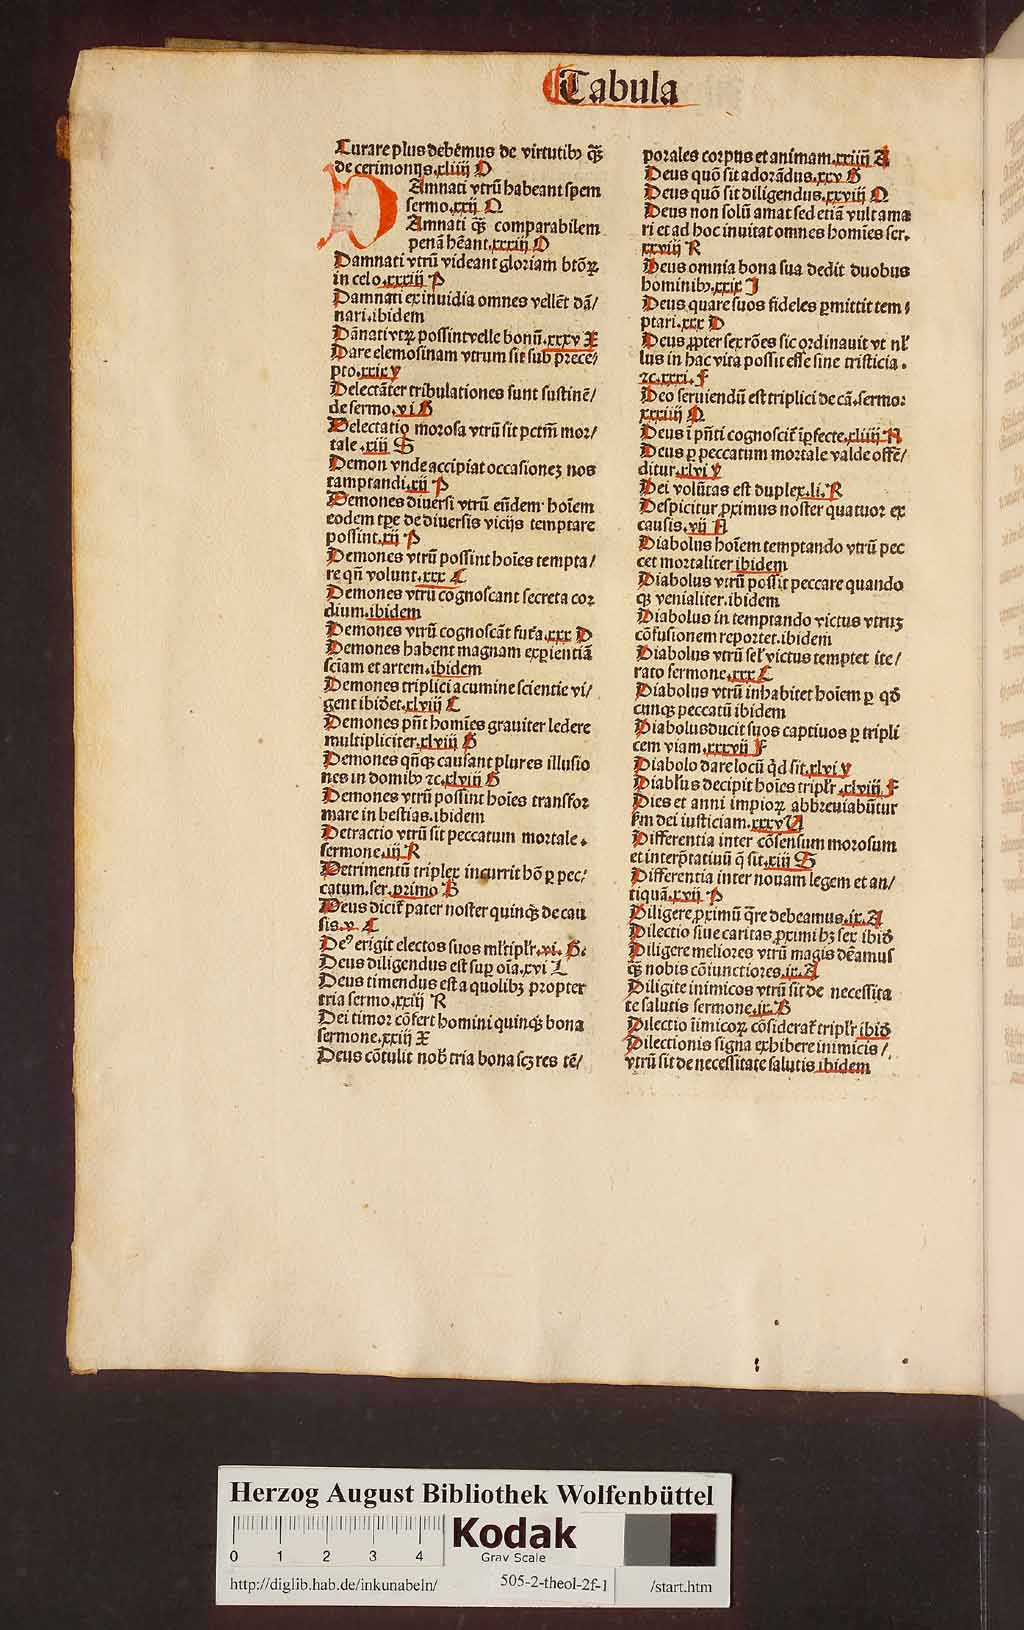 Tabula
Curare plus debemus de virtutibꝫ qȝ̄
de cerimonijs.xliiij O
DAmnati vtrū habeant spem
sermo.xxij Q
DAmnati qȝ̄ comparabilem
penā hēant.xxxiij O
Damnati vtrū videant gloriam btōꝝ
in celo.xxxiij P
Damnati ex inuidia omnes vellēt dā/
nari.ibidem
Dānati vtꝝ possint velle bonū.xxxv X
Dare elemosinam vtrum sit sub prece/
pto.xxix V
Delectāter tribulationes sunt sustinē/
de sermo.vi B
Delectatio morosa vtrū sit pctm̄ mor/
tale.xiij S
Demon vnde accipiat occasioneꝫ nos
tamptandi.xij P
Demones diuersi vtrū eūdem hoīem
eodem tꝑe de diuersis vicijs temptare
possint.xij P
Demones vtrū possint hoīes tempta/
re qn̄ volunt.xxx C
Demones vtrū cognoscant secreta cor
dium.ibidem
Demones vtrū cognoscāt futa.xxx D
Demones habent magnam exꝑientiā
sciam et artem.ibidem
Demones triplici acumine scientie vi/
gent ibidet.xlviij C
Demones pn̄t homīes grauiter ledere
multipliciter.xlviij B
Demones qn̄qȝ causant plures illusio
nes in domibꝫ ⁊c.xlviij B
Demones vtrū possint hoīes transfor
mare in bestias.ibidem
Detractio vtrū sit peccatum mortale.
sermone.iij R
Detrimentū triplex incurrit hō ꝑ pec/
catum.ser.primo B
Deus dicit̄ pater noster quinqȝ de cau
sis.v C
Deꝰ erigit electos suos ml̄tipl̄r.vi. B.
Deus diligendus est suꝑ oīa.xvi L
Deus timendus est a quolibꝫ propter
tria sermo.xxiij R
Dei timor cōfert homini quinqȝ bona
sermone.xxiij X
Deus cōtulit nob̄ tria bona scꝫ res tē/
porales corpus et animam.xxiiij A
Deus quō sit adorādus.xxv B
Deus quō sit diligendus.xxviij Q
Deus non solū amat sed etiā vult ama
ri et ad hoc inuitat omnes homīes ser.
xxviij R
Deus omnia bona sua dedit duobus
hominibꝫ.xxix I
Deus quare suos fideles ꝑmittit tem/
ptari.xxx D
Deus ꝓpter sex rōes sic ordinauit vt nl̄
lus in hac vita possit esse sine tristicia.
⁊c.xxxi.F
Deo seruiendū est triplici de cā.sermo:
xxxiiij Q
Deus ī pn̄ti cognoscit̄ īꝑfecte.xliiij N
Deus ꝑ peccatum mortale valde offē/
ditur.xlvi V
Dei volūtas est duplex.li.R
Despicitur ꝓximus noster quatuor ex
causis.vij N
Diabolus hoīem temptando vtrū pec
cet mortaliter ibidem
Diabolus vtrū possit peccare quando
qȝ venialiter.ibidem
Diabolus in temptando victus vtruꝫ
cōfusionem reportet.ibidem
Diabolus vtrū sel̄ victus temptet ite/
rato sermone.xxx C
Diabolus vtrū inhabitet hoīem ꝑ qd̄
cunqȝ peccatū ibidem
Diabolus ducit suos captiuos ꝑ tripli
cem viam.xxxvij F
Diabolo dare locū qd̄ sit.xlvi V
Diabl̄us decipit hoīes tripl̄r.xlviij F
Dies et anni impioꝝ abbreuiabūtur
km̄ dei iusticiam.xxxv U
Differentia inter cōsensum morosum
et interp̄tatiuū q̄ sit.xiij S
Differentia inter nouam legem et an/
tiquā.xvij P
Diligere ꝓximū q̄re debeamus.ix.A
Dilectio siue caritas ꝓximi hꝫ sex ibid̄
Diligere meliores vtrū magis dēamus
qȝ̄ nobis cōiunctiores.ix.A
Diligite inimicos vtrū sit de necessita
te salutis sermone.ix.B
Dilectio īimicoꝝ cōsiderat̄ tripl̄r ibid̄
Dilectionis signa exhibere inimicis/
vtrū sit de necessitate salutis ibidem
Herzog August Bibliothek Wolfenbüttel
0 1 2 3 4
Kodak
Gray Scale
http://diglib.hab.de/inkunabeln/ 505-2-theol-2f-1 /start.htm